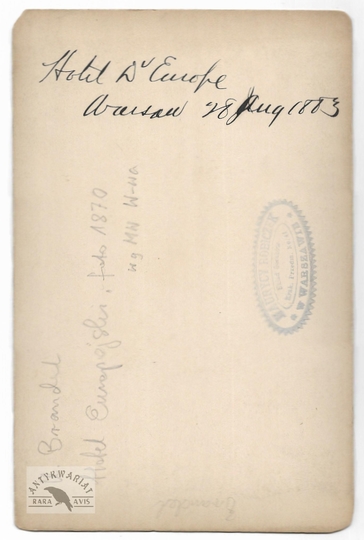 Hotel D'Europe
Warsaw 28 Aug 1883
Brandel
Hotel Europejski, foto 1870
wg MN W-wa
MAURYCY
W WARSZAWIE
ANTYKWARIAT
RARA AVIS